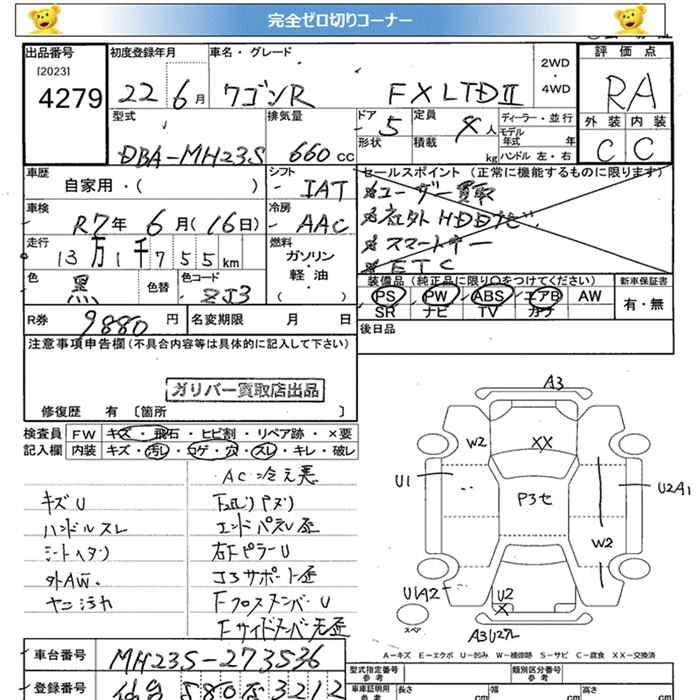 完全ゼロ切りコーナー
出品番号 初度登録年月 車名・グレード 2WD・4WD 評価点
[2023]
4279 22 6月 ワゴンR FX LTDⅡ RA
型式 排気量 ドア 5 定員 4人 ディーラー・並行 外装 内装
形状 積載 kg モデル年式 年 C C
DBA-MH23S 660cc ハンドル 左・右
車歴 シフト セールスポイント(正常に機能するものに限ります)
自家用・( ) IAT ユーザー買取
車検 冷房 社外HDDナビ
R7年 6月(16日) AAC スマートキー
走行 燃料 ETC
13万1千755km ガソリン・軽油
( )
色 黒 色替 色コード ZJ3 装備品(純正品に限り○をつけてください) 新車保証書
PS PW ABS エアB AW 有・無
SR ナビ TV カワ
R券 9880円 名変期限 月 日 後日品
注意事項申告欄(不具合内容等は具体的に記入して下さい)
ガリバー買取店出品
修復歴 有 [箇所 ]
検査員 FW キズ・飛石・ヒビ割・リペア跡・×要
記入欄 内装 キズ・汚レ・コゲ・穴・スレ・キレ・破レ
AC冷え悪
キズU
ハンドルスレ エンドパネル歪
シートヘタリ 右Fピラー U
外AW. コアサポート歪
ヤニ汚れ Fクロスメンバー U
Fサイドメンバー先歪
A3
W2 XX
U1 P3セ U2A1
W2
U1A2
U2
X
スペア
A3U2ワレ
A-キズ E-エクボ U-凹み W-補修跡 S-サビ C-腐食 XX-交換済
車台番号 MH23S-273536 型式指定番号 参考 類別区分番号 参考
登録番号 仙台 580 さ 3212 車庫証明用 参考 長さ cm 幅 cm 高さ cm